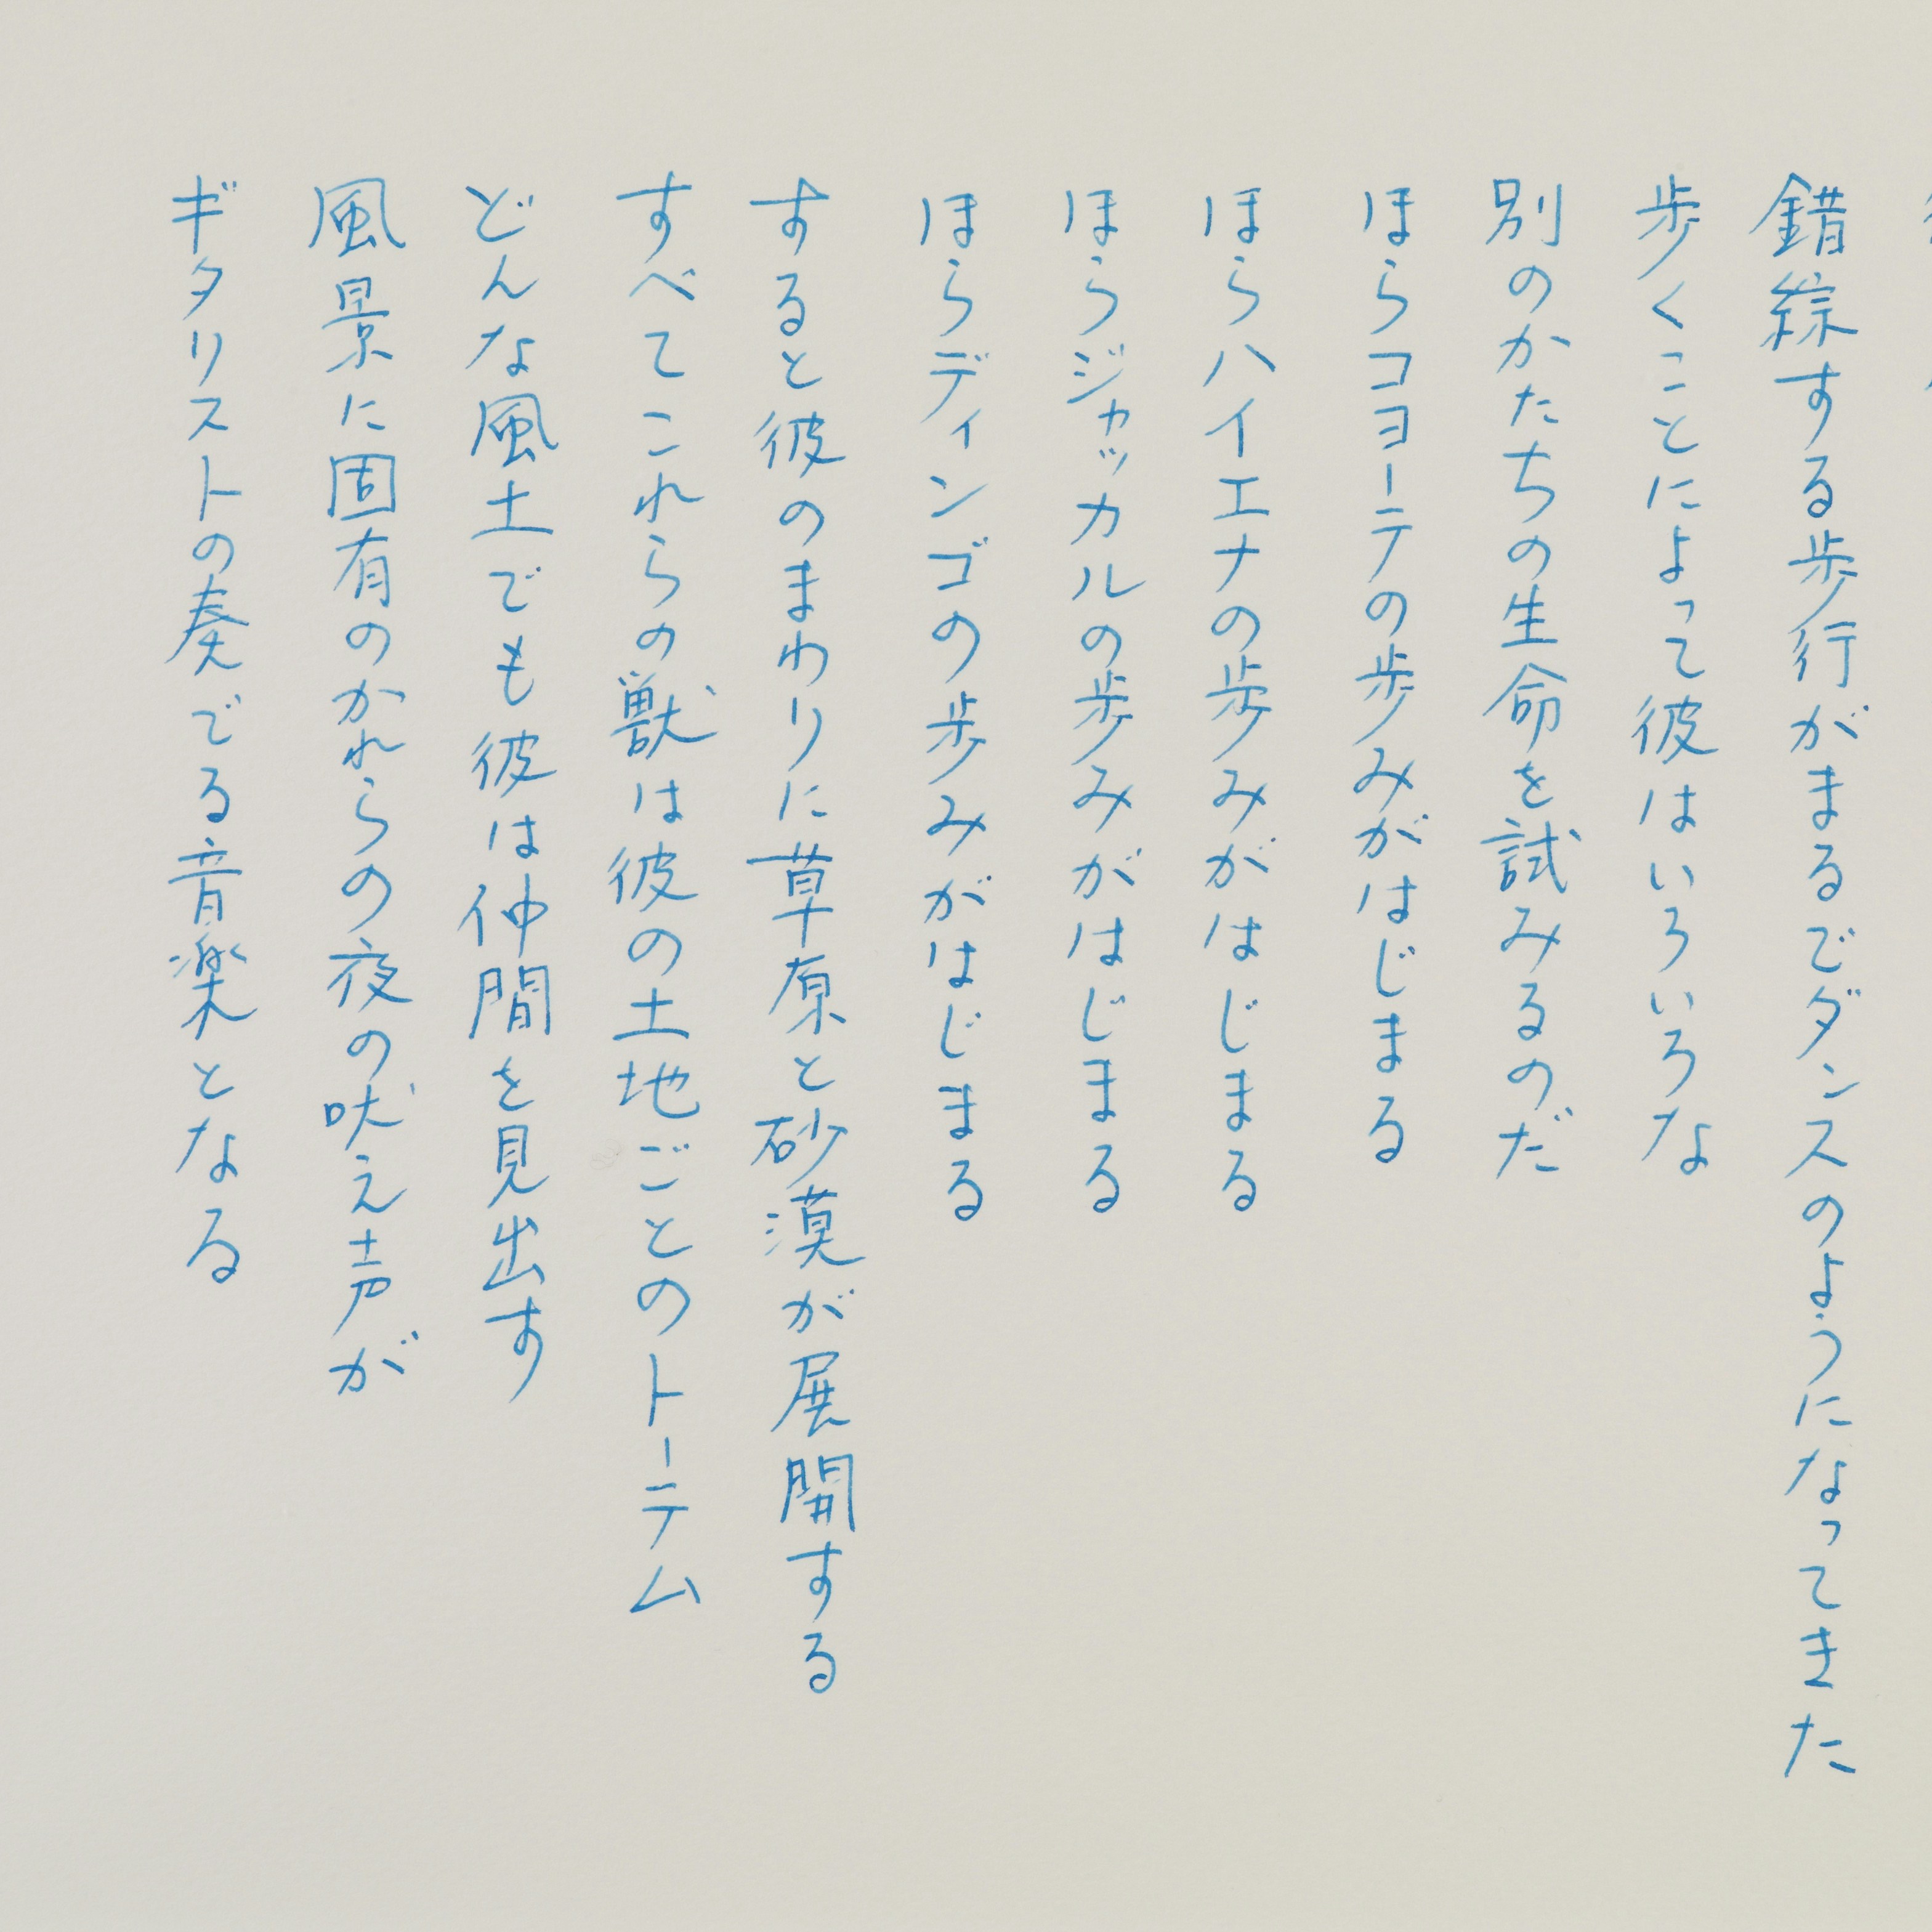 錯綜する歩行がまるでダンスのようになってきた
歩くことによって彼はいろいろな
別のかたちの生命を試みるのだ
ほらコヨーテの歩みがはじまる
ほらハイエナの歩みがはじまる
ほらジャッカルの歩みがはじまる
ほらディンゴの歩みがはじまる
すると彼のまわりに草原と砂漠が展開する
すべてこれらの獣は彼の土地ごとのトーテム
どんな風土でも彼は仲間を見出す
風景に固有のかれらの夜の吠え声が
ギタリストの奏でる音楽となる